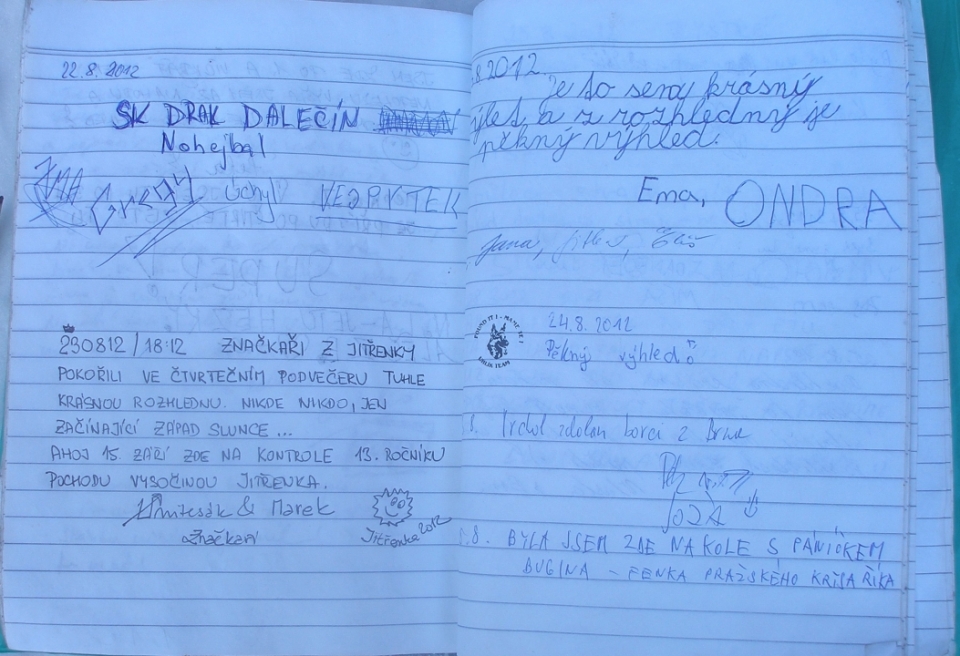 22.8. 2012
SK DRAK DALEČÍN
Nohejbal
EMA Gregy Úchyl VEDPYTEK
230812/18:12 ZNAČKAŘI Z JITŘENKY
POKOŘILI VE ČTVRTEČNÍM PODVEČERU TUHLE
KRÁSNOU ROZHLEDNU. NIKDE NIKDO, JEN
ZAČÍNAJÍCÍ ZÁPAD SLUNCE ...
AHOJ 15. ZÁŘÍ ZDE NA KONTROLE 13. ROČNÍKU
POCHODU VYSOČINOU JITŘENKA.
& Marek
značkaři
Jitřenka 2012
2012
Je to senzy krásný
ýlet a z rozhledny je
pěkný výhled.
Ema, ONDRA
Jana,
24.8. 2012
Pěkný výhled
Vrchol zdolán borci z Brna
8. BYLA JSEM ZDE NA KOLE S PÁNÍČKEM
BUGINA - FENKA PRAŽSKÉHO KRYSAŘÍKA